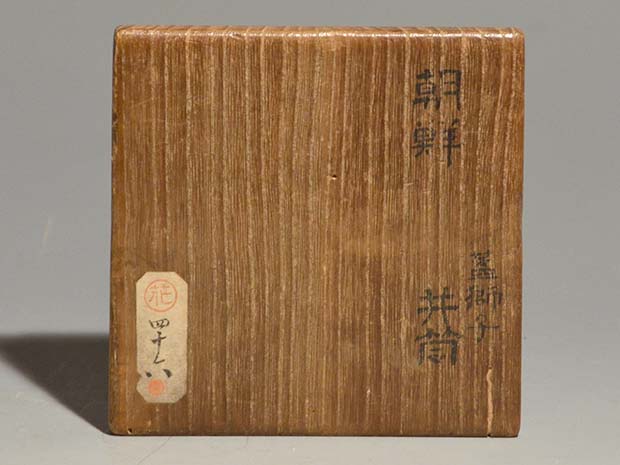 朝鮮
蓋獅子
井筒
花
四十六